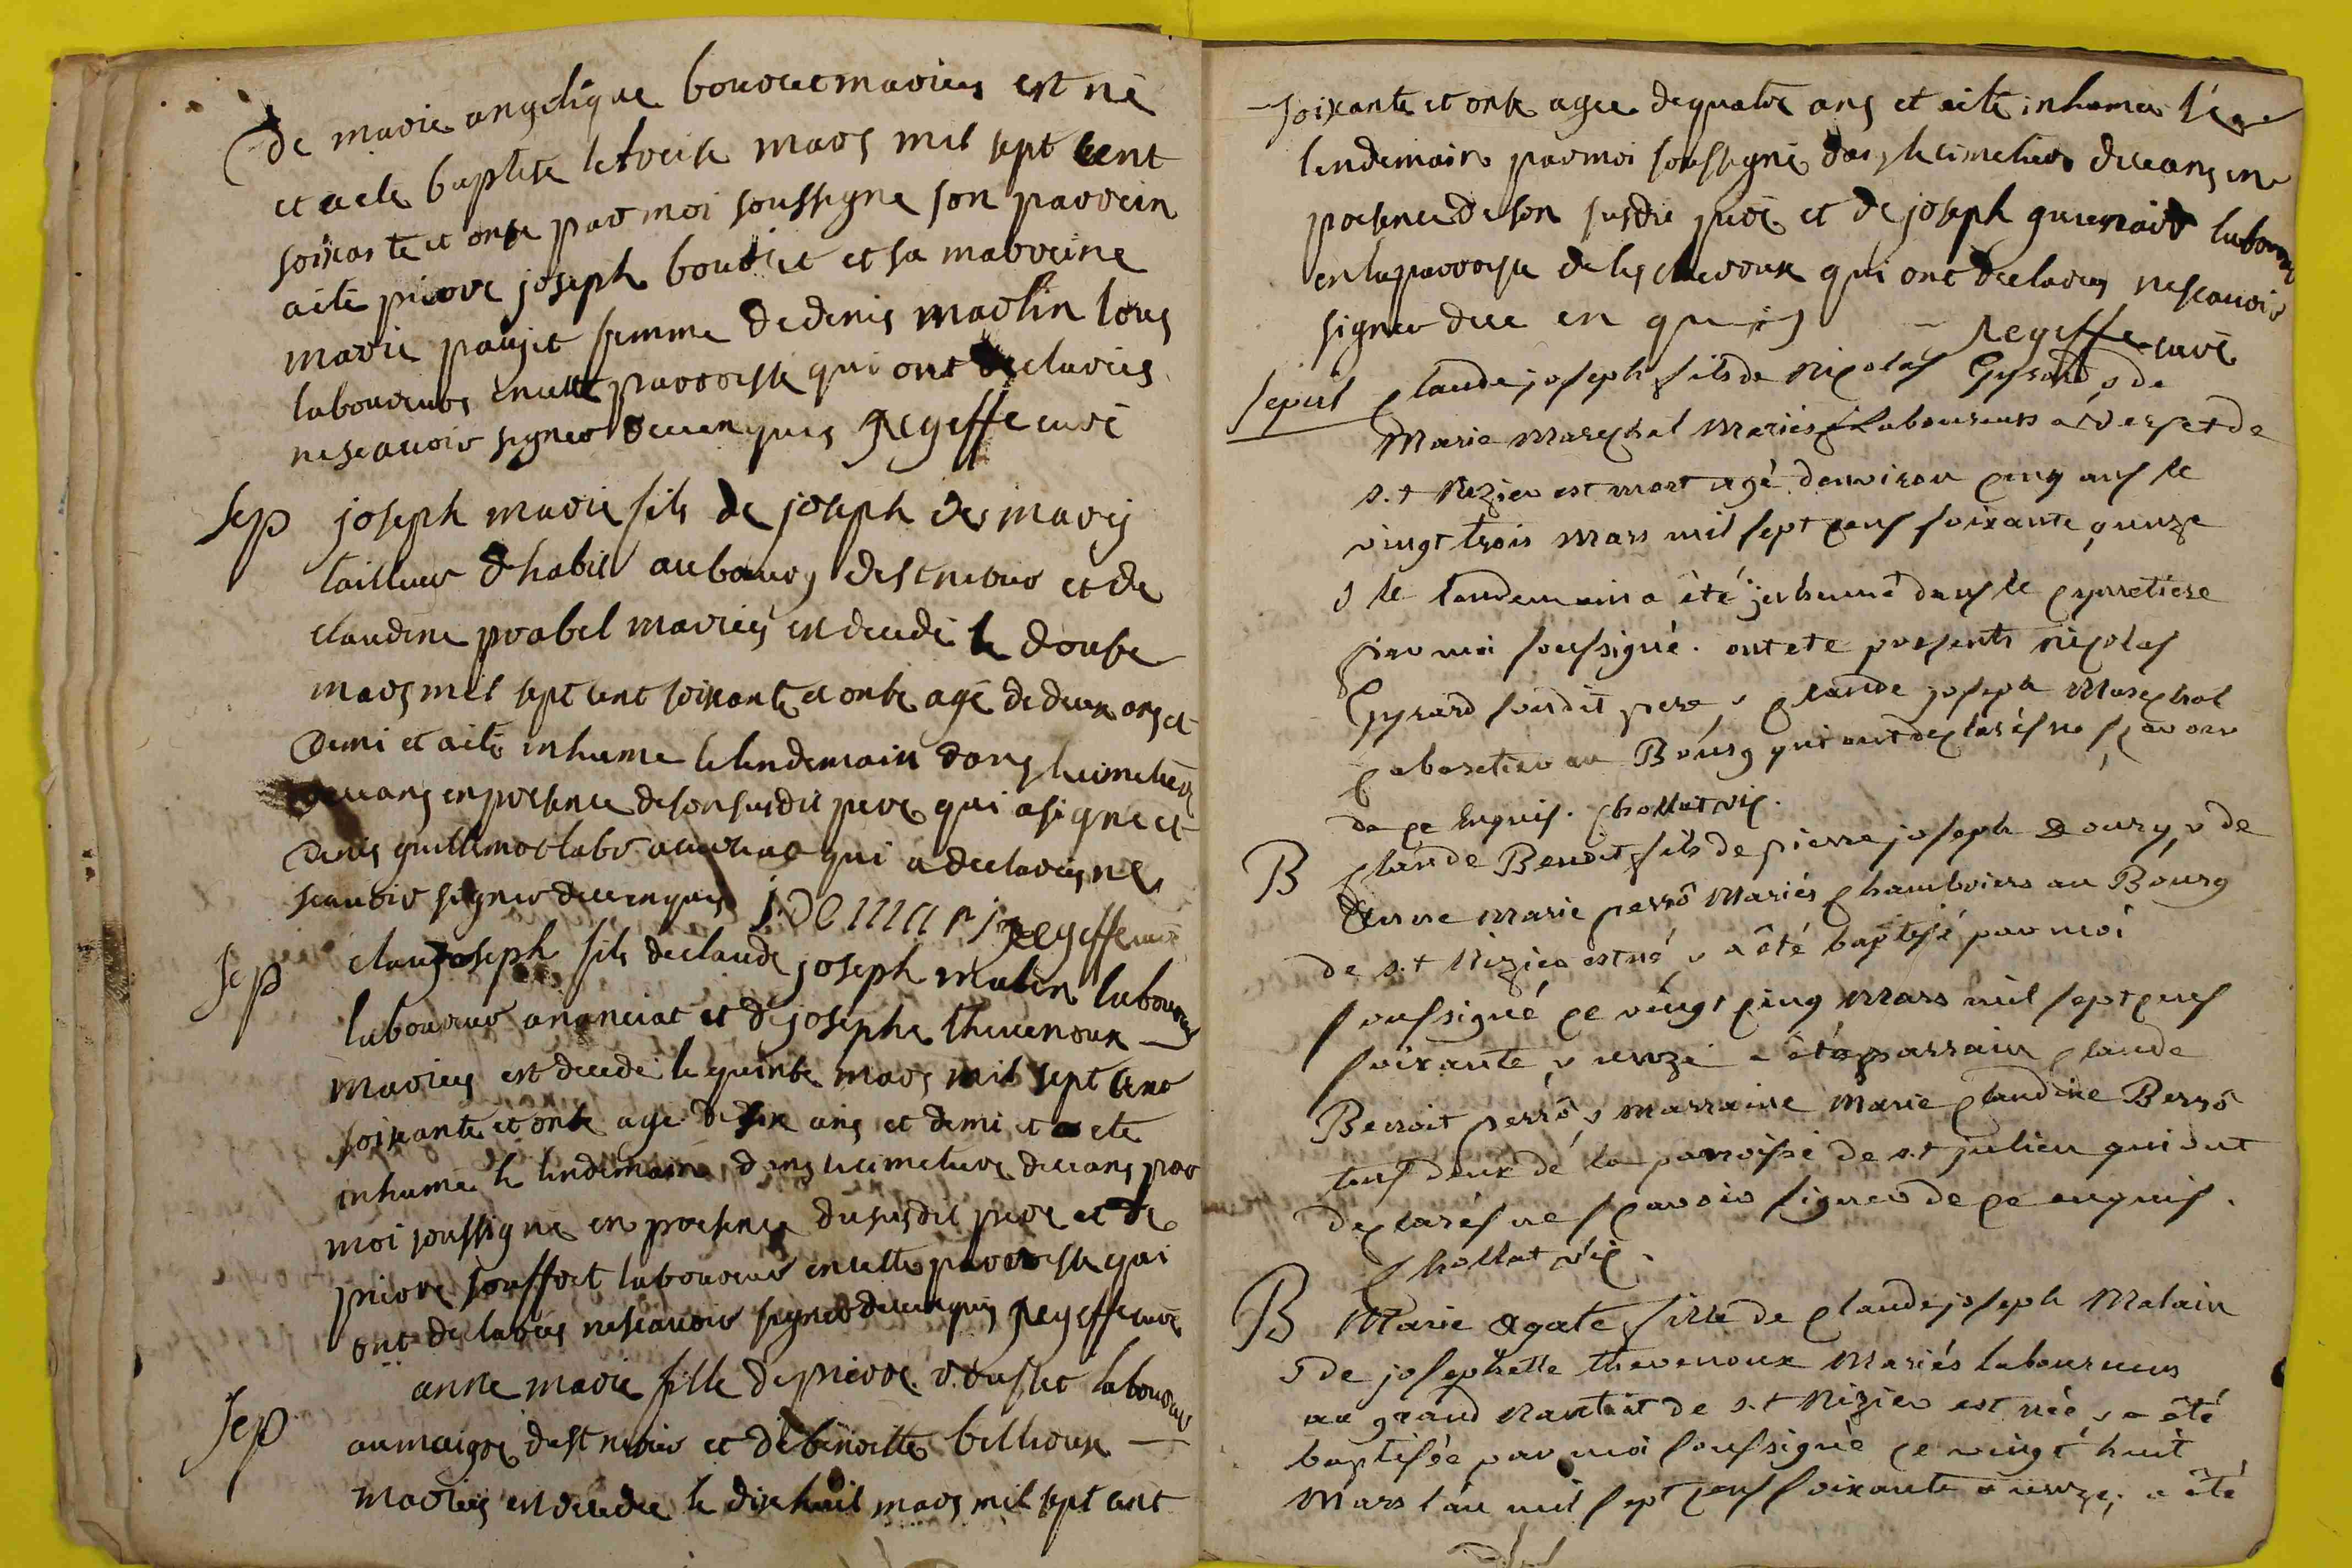 de marie angelique bouvret maries est né
et a ete baptise le treise mars mil sept cent
soixante et onse par moi soussigne son parrein
a eté pierre joseph bouvret et sa marreine
marie paujet femme de denis martin tous
laboureurs en cette parroisse qui ont declarés
ne scavoir signer de ce enquis regeffe curé
sep joseph marie fils de joseph des maris
tailleur d'habit au bourg de st nizier et de
claudine prabel mariés est decede le douse
mars mil sept cent soixante et onse agé de deux ans et
demi et a eté inhume le lendemain dans le cimetiere
de ceans en presence de son susdit pere qui a signe et
denis guillemot qui a declares ne
scavoir signer de ce enquis j. demari regeffe curé
sep claude joseph fils de claude joseph malin laboureur
laboureur a nanciat et de josephe thevenoux
maries est decedé le quinse mars mil sept cent
soixante et onse agé de six ans et demi et a ete
inhumé le lendemain dans le cimetiere de ceans par
moi soussigné en presence du susdit pere et de
pierre souffret laboureur en cette parroisse qui
ont declarés ne scavoir signer de ce enquis regeffe curé
sep anne marie fille de pierre laboureur
au maigre de st nizier et de benoitte bellioux
mariés est decedee le dix huit mars mil sept cent
soixante et onse agee de quatre ans et a eté inhumée
lendemain par moi soussigné dans le cimetiere de ceans en
presence de son susdit pere et de joseph guienard laboureur
en la parroisse de qui ont declarés ne scavoir
signer de ce enquis regeffe curé
sepult claude joseph fils de nicolas Gyrard & de
Marie Marechal mariés laboureurs a de
s.t Nizier est mort agé d'environ cinq ans le
vingt trois mars mil sept cens soixante & unze
& le landemain a été inhumé dans le cymetiere
par moi soussigné. ont ete presents nicolas
Gyrard susdit pere, & claude joseph Marechal
cabaretier au Bourg qui ont declarés ne sçavoir
de ce enquis. Chollat vic.
B Claude Benoit fils de pierre joseph & de
Anne Marie perrô Mariés au Bourg
de s.t Nizier est né & a été baptisé par moi
soussigné ce vingt cinq Mars mil sept cens
soixante & unze a été parrain claude
Benoit perrô & marraine Marie claudine Berrô
tous deux de la parroisse de s.t julien qui ont
declarés ne sçavoir signer de ce enquis.
Chollat vic.
B Marie Agate fille de claude joseph Malain
& de josephette thevenoux Mariés laboureurs
au grand Nantiat de s.t Nizier est née & a été
baptisée par moi soussigné ce vingt huit
Mars l'an mil sept cens soixante & unze, a été